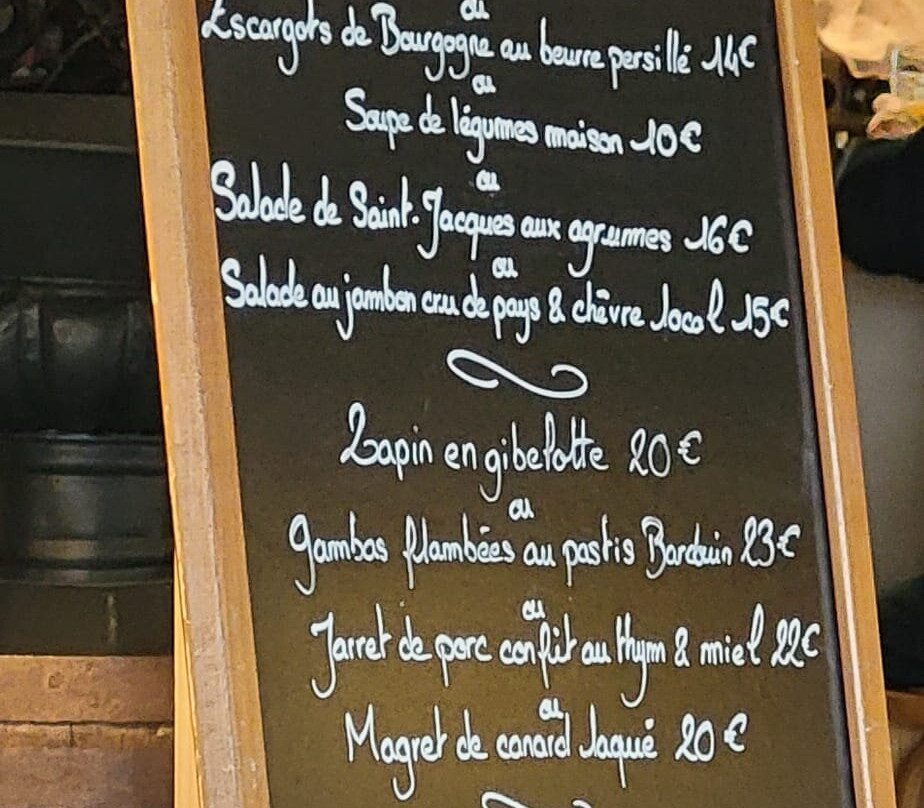 ou
Escargots de Bourgogne au beurre persillé 14€
ou
Soupe de légumes maison 10€
ou
Salade de Saint-Jacques aux agrumes 16€
ou
Salade au jambon cru de pays & chèvre local 15€
Lapin en gibelotte 20€
ou
Gambas flambées au pastis Bardouin 23€
ou
Jarret de porc confit au thym & miel 22€
ou
Magret de canard laqué 20€